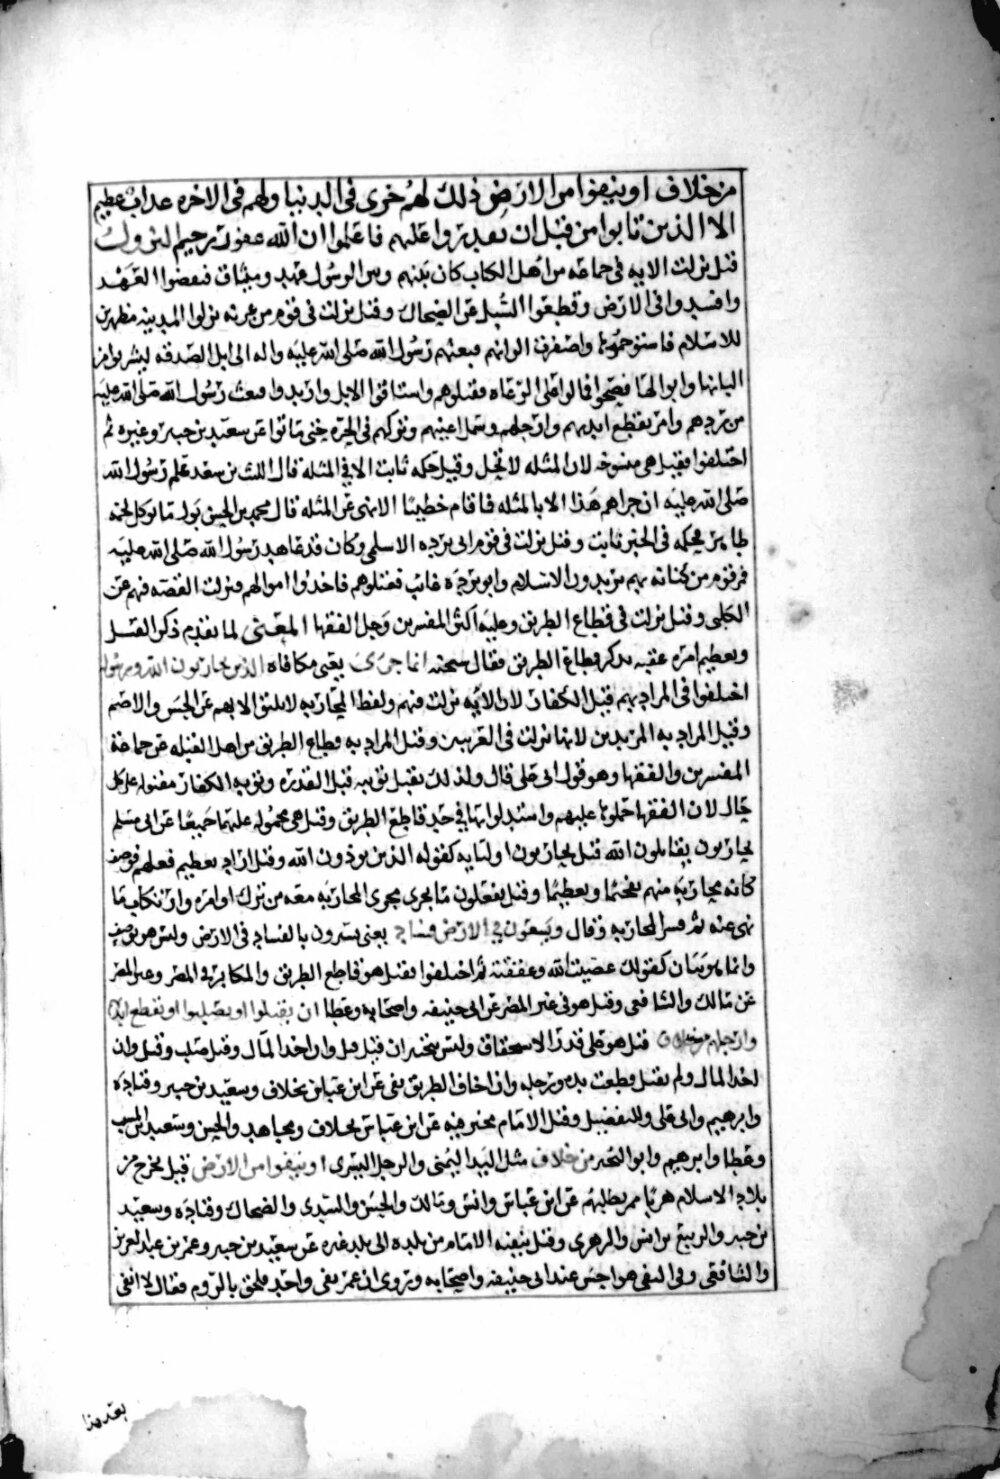 من خلاف او ينفوا من الارض ذلك لهم خزى فى الدنيا ولهم فى الاخره عذاب عظيم
الا الذين تابوا من قبل ان تقدروا عليهم فاعلموا ان الله غفور رحيم النزول
قيل نزلت الايه فى جماعه من اهل الكتاب كان بينهم وبين الرسول عهد وميثاق فنقضوا العهد
وافسدوا فى الارض وقطعوا السبل عن الضحاك وقيل نزلت فى قوم من عرينه نزلوا المدينه مظهرين
للاسلام فاستوخموها واصفرت الوانهم فبعثهم رسول الله صلى الله عليه واله الى ابل الصدقه ليشربوا من
البانها وابوالها فصحوا فمالوا على الرعاه فقتلوهم واستاقوا الابل وارتدوا فبعث رسول الله صلى الله عليه
من ردهم وامر بقطع ايديهم وارجلهم وسمل اعينهم وتركهم فى الحره حتى ماتوا عن سعيد بن جبير وغيره ثم
اختلفوا فقيل هى منسوخه لان المثله لا تحل وقيل حكمه ثابت الا فى المثله قال الليث بن سعد علم رسول الله
صلى الله عليه ان جزاهم هذا لا بالمثله فاقام خطيبا الا نهى عن المثله قال محمد بن الحسن بول ما يوكل لحمه
طاهر فحكمه فى الخبر ثابت وقيل نزلت فى قوم ابى برده الاسلمى وكان قد عاهد رسول الله صلى الله عليه
فمر قوم من كنانه بهم يريدون الاسلام وابو برده غائب فقتلوهم فاخذوا اموالهم فنزلت القصه فيهم عن
الكلبى وقيل نزلت فى قطاع الطريق وعليه اكثر المفسرين وجل الفقها المعنى لما تقدم ذكر القتل
وتعظيم امره عقبه بذكر قطاع الطريق فقال سبحنه انما جزى يعنى مكافاه الذين يحاربون الله ورسوله
اختلفوا فى المراد بهم قيل الكفار لان الايه نزلت فيهم ولفظ المحاربه لا يليق الا بهم عن الحسن والاصم
وقيل المراد به المرتدين لانها نزلت فى العرنيين وقيل المراد به قطاع الطريق من اهل القبله عن جماعة
المفسرين والفقها وهو قول ابى على قال ولذلك تقبل توبته قبل القدره وتوبه الكفار مقبوله على كل
حال لان الفقها حملوها عليهم واستدلوا بها فى حد قاطع الطريق وقيل هى محموله عليهما جميعا عن ابى مسلم
يحاربون يقاتلون الله قيل يحاربون اولياه كقوله الذين يوذون الله وقيل اراد تعظيم فعلهم فوصف
كانه محاربه منهم تفخيما وتعظيما وقيل يفعلون ما يجرى مجرى المحاربه معه من ترك اوامره وارتكاب ما
نهى عنه ثم فسر المحاربه وقال ويسعون فى الارض فسادا يعنى يسيرون بالفساد فى الارض وليس هو بوصف
وانما هو بيان كقولك عصيت الله وعققته ثم اختلفوا فقيل هو قاطع الطريق والمكابر فى المصر وغير المصر
عن مالك والشافعى وقيل هو فى غير المصر عن ابى حنيفه واصحابه وعطا ان يقتلوا او يصلبوا او تقطع ايديهم
وارجلهم من خلاف قيل هو على قدر الاستحقاق وليس بتخيير ان قتل قتل وان اخذ المال وقتل صلب وقتل وان
اخذ المال ولم يقتل قطعت يده ورجله وان اخاف الطريق نفى عن ابن عباس بخلاف وسعيد بن جبير وقتاده
وابرهيم وابى على وللتفضيل وقيل الامام مخير فيه عن ابن عباس بخلاف ومجاهد والحسن وسعيد بن المسيب
وعطا وابرهيم وابو النحير من خلاف مثل اليد اليمنى والرجل اليسرى او ينفوا من الارض قيل يخرج من
بلاد الاسلام هربا ممن يطلبهم عن ابن عباس وانس ومالك والحسن والسدى والضحاك وقتاده وسعيد
بن جبير والربيع بن انس والزهرى وقيل ينفيه الامام من بلده الى بلد غيره عن سعيد بن جبير وعمر بن عبد العزيز
والشافعى وفى النفى هو الحبس عند ابى حنيفه واصحابه وتروى ان عمر نفى واحد فلحق بالروم فقال لا انفى
بعد هذا